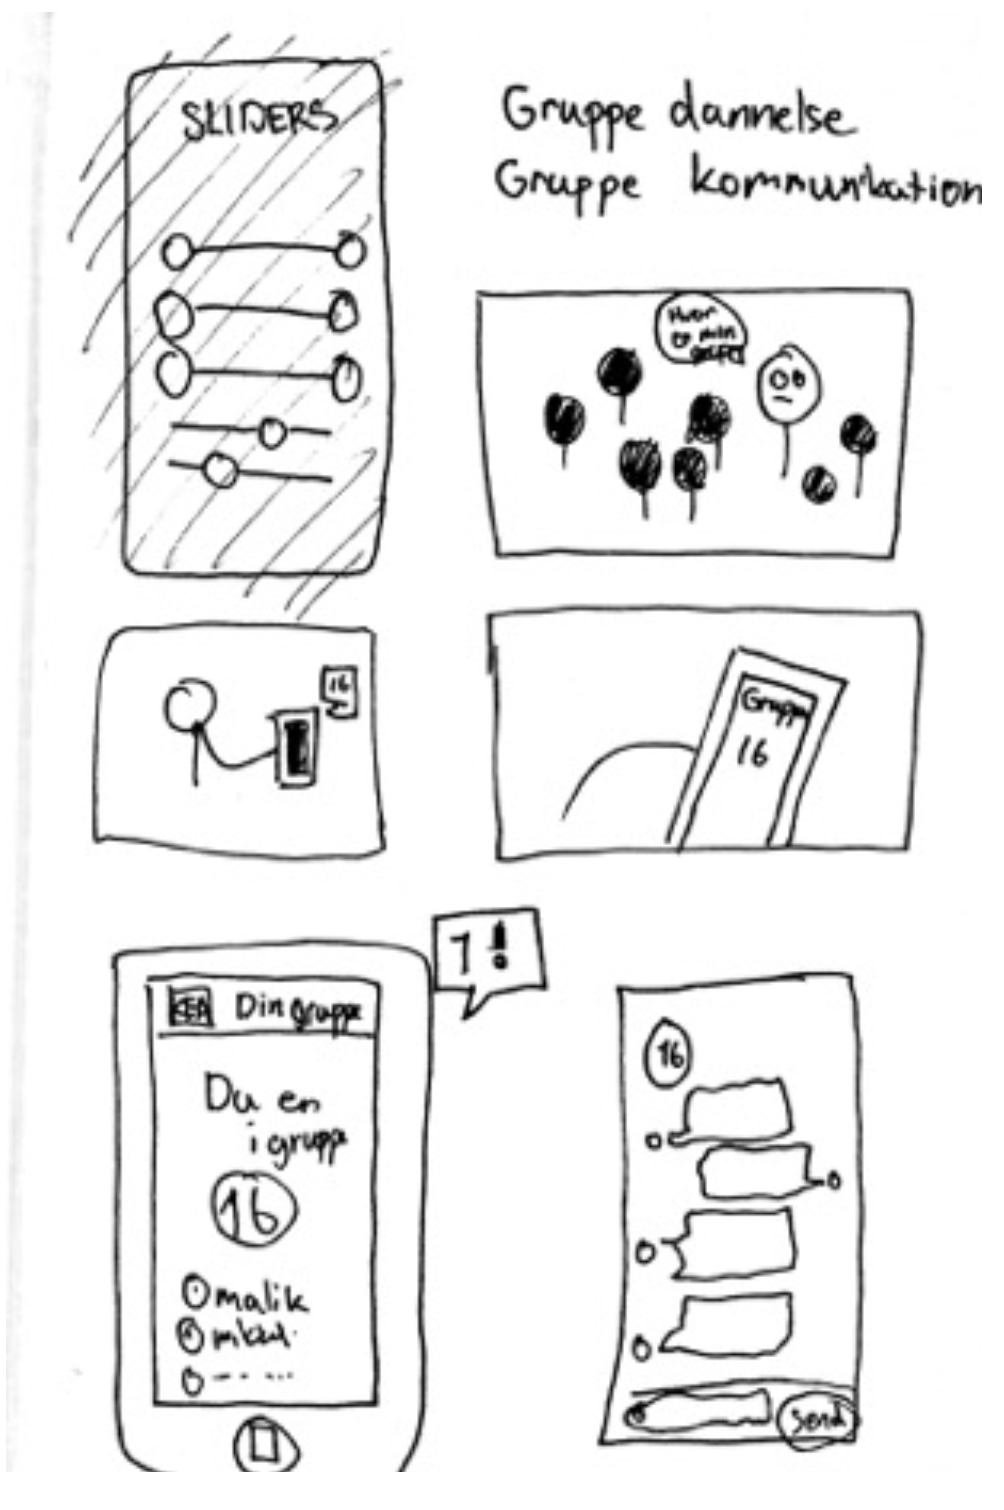 SLIDERS
Gruppe dannelse
Gruppe kommunikation
Hvor
er min
16
Gruppe
16
1!
KEA Din gruppe
Du er
i gruppe
16
malik
16
Send